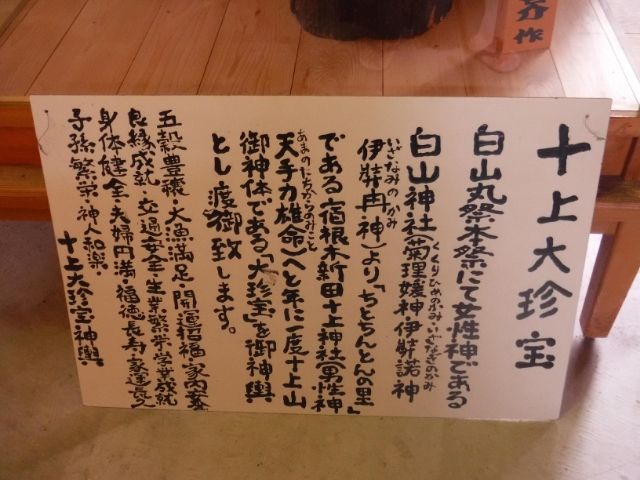 十上大珍宝
白山丸祭本祭にて女性神である
白山神社(菊理媛神・伊弉諾神
くくりひめのかみ・いざなぎのかみ
伊弉冉神)より「ちとちんとんの里」
いざなみのかみ
である宿根木新田十上神社(男性神
天手力雄命)へと年に一度十上山
あまのたぢからおのみこと
御神体である「大珍宝」を御神輿
とし渡御致します。
五穀豊穣・大漁満足・開運招福・家内安全
良縁成就・交通安全・生業繁栄・学業成就
身体健全・夫婦円満・福徳長寿・家運長久
子孫繁栄・神人和楽
十上大珍宝神輿
作